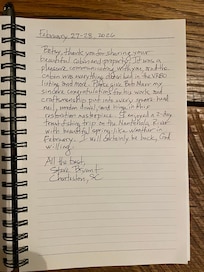 February 27-28, 2024
Betsy, thank you for sharing your
beautiful cabin and property! It was a
pleasure communicating with you, and the
cabin was everything detailed in the VRBO
listing and more. Please give Bob Marr my
sincere congratulations for the work and
craftsmanship put into every square head
nail, wooden dowel, and hinge in this
restoration masterpiece. I enjoyed a 2-day
trout fishing trip on the Nantahala River
with beautiful spring-like weather in
February. I will certainly be back, God
willing.
All the best,
Steve Bryant
Charleston, SC